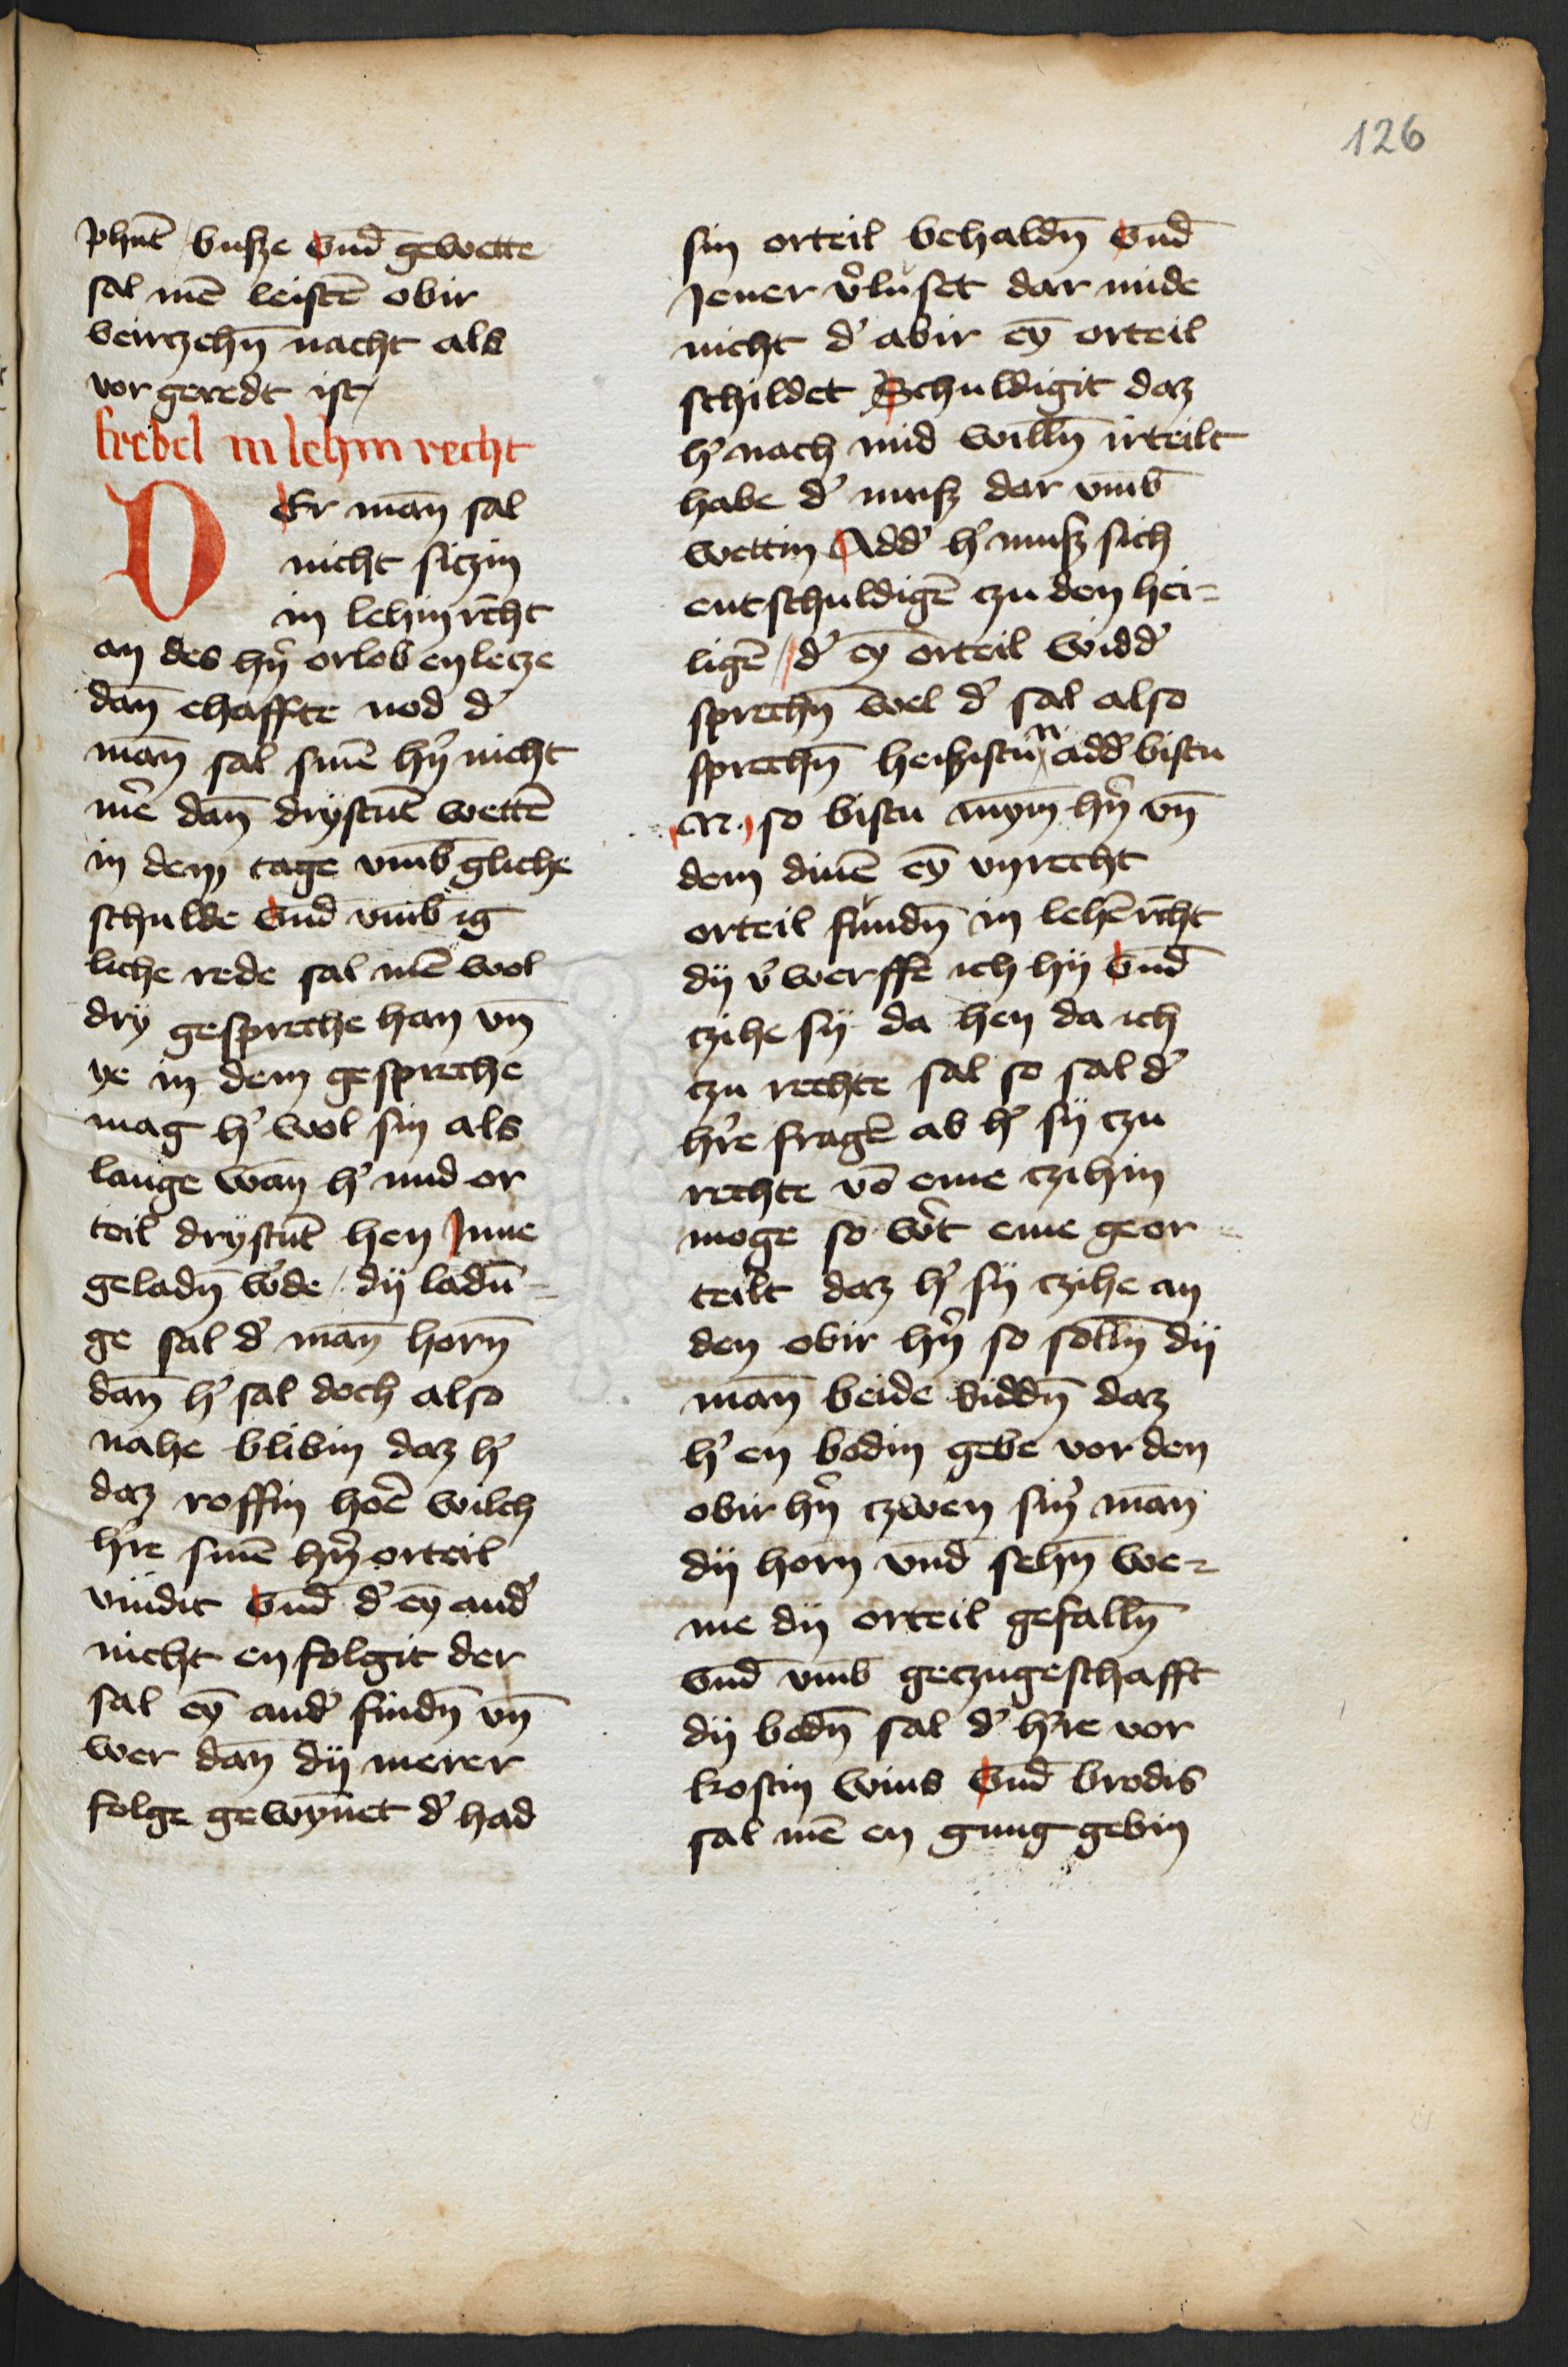 126
phūt busze vnd gewette
sal mē leistē obir
veirczehn̄ nacht als
vor geredt ist
frebel in lehin recht
DEr man̄ sal
nicht siczin
in lehin recht
an des hrn̄ orlob en lecze
dan̄ ehaffte nod d'
man̄ sal sinē hrn̄ nicht
mer dan̄ drystūt wettē
in dem tage vmb gliche
schulde vnd vmb ig
liche rede sal mē wol
dry gespreche han vn̄
ye in dem gespreche
mag h' wol sin als
lange wan̄ h' mid or
teil drystūt hen Inne
geladn̄ w'de / dij ladū-
ge sal d' man̄ horn̄
dan̄ h' sal doch also
nahe blibin daz h'
daz roffin hoē wilch
h're sinē hrn̄ orteil
vindit vnd d' eȳ and'
nicht en folgit der
sal eȳ and' findn̄ vn̄
wer dan̄ dij merer
folge gewȳnet d' had
sin orteil behaldn̄ vnd
Jener v'luset dar mide
nicht d' abir eȳ orteil
schildet Schuldigit daz
h' nach mid willn̄ irteilt
habe d' musz dar vmb
wettin Add' h' musz sich
entschuldigē czu den hei-
ligē / d' eȳ orteil widd'
sprechn̄ wel d' sal also
sprechn̄ heiszistu n add' bistu
N. so bistu mynn hrn̄ vn̄
dem dinē eȳ vnrecht
orteil fundn̄ in lehē recht
dij v'werffe ich hij vnd
czihe sij da hen da ich
czu rechte sal so sal d'
h're fragē ab h' sij czu
rechte vō eme czihin
moge so w't eme geor
teilt daz h' sij czihe an
den obir hrn̄ so solln̄ dij
man̄ beide biddn̄ daz
h' en bodin gebe vor den
obir hrn̄ czwen sin' man
dij horn vnd sehn̄ we-
me dij orteil gefalln̄
vnd vmb geczugeschafft
dij bodn̄ sal d' h're vor
kostin wins vnd brodis
sal mē en gnug gebin